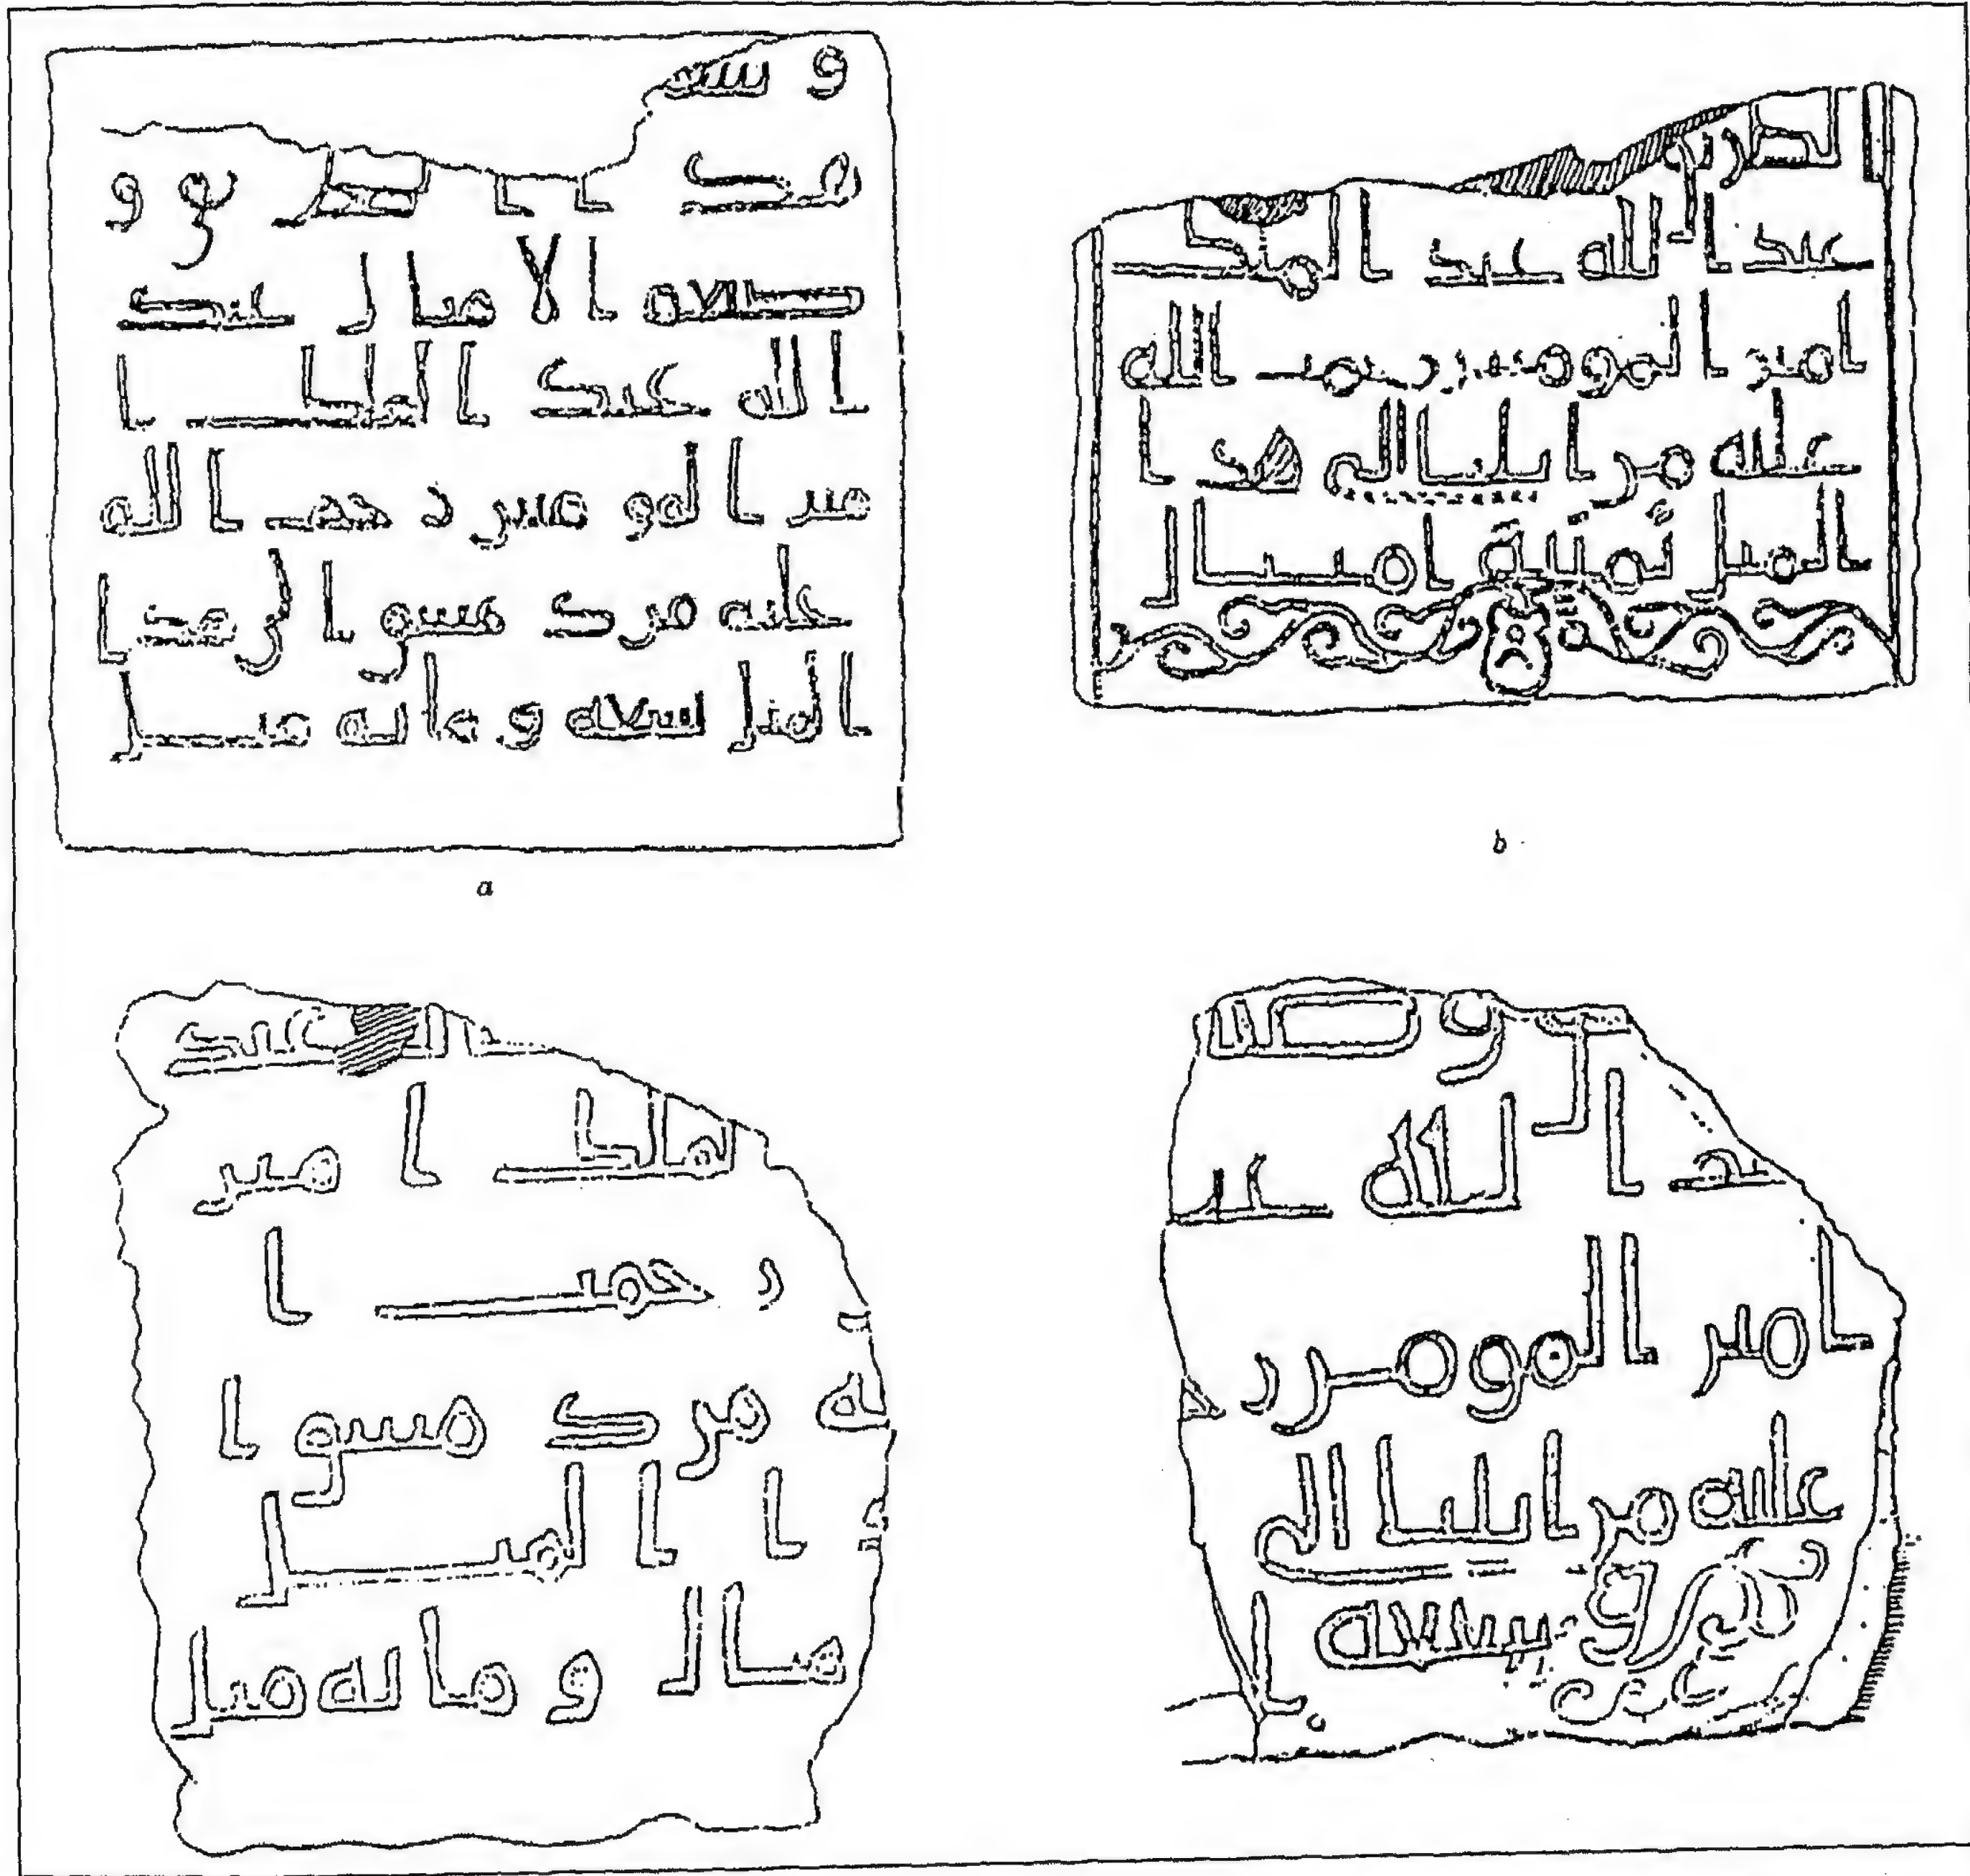 و سهـ
هد ا ا لطر يق و
صنعه ا لا ميا ل عبد
ا لله عبد ا لملك ا
مير ا لمو منين ر حمت ا لله
عليه من د مشق ا لى هد ا
ا لميل تسعه و ما ئه ميل
a
الطريق
عبد ا لله عبد ا لملك
ا مير ا لمومنين رحمت الله
عليه من ا يليا ا لى هد ا
ا لميل ثمنية ا ميا ل
b
الله عبد
لملك ا مير
ر حمت ا
ه من د مشق ا
ا ا لميل
ثما ن و ما ئه ميل
يق و
بد ا لله عبـ
ا مير ا لمو منين ر حـ
عليه من ا يليا ا لى
ا